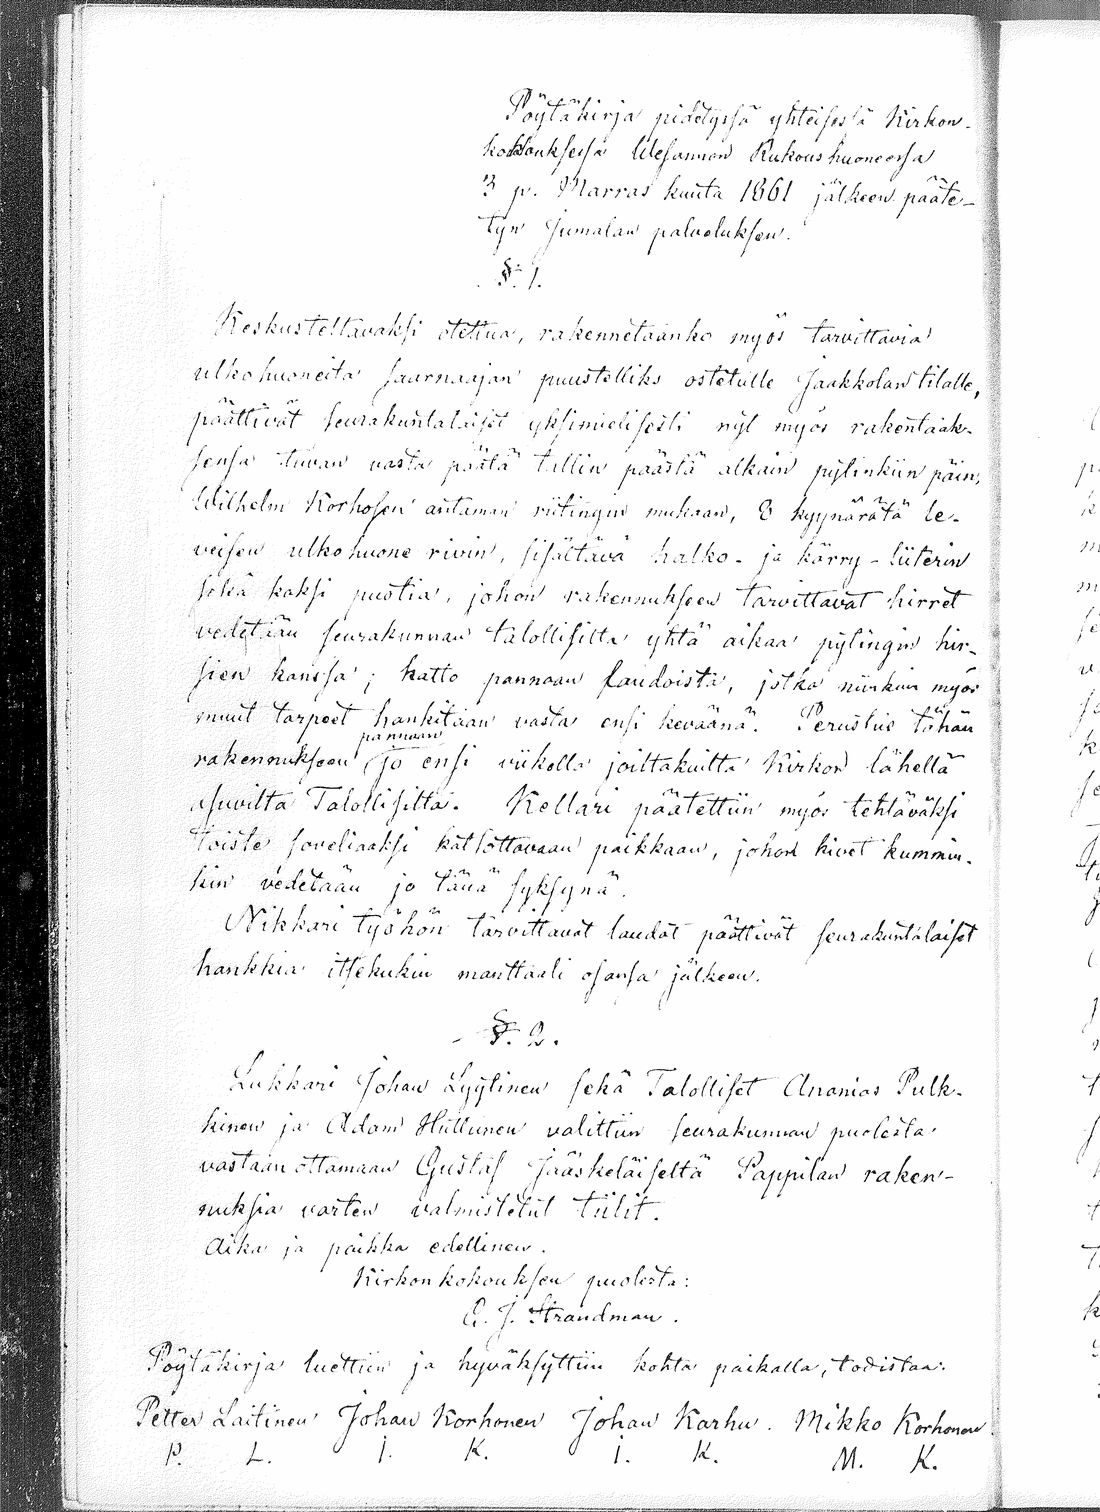 Pöytäkirja pidetyssä yhteisessä Kirkon-
kokouksessa Wesannon Rukoushuoneessa
3 p. Marras kuuta 1861 jälkeen pääte-
tyn Jumalan palveluksen.
§. 1.
Keskusteltavaksi otettua, rakennetaanko myös tarvittavia
ulkohuoneita saarnaajan puustelliks ostetulle Jaakkolan tilalle,
päättivät seurakuntalaiset yksimielisesti nyt myös rakentaak-
sensa tuvan vasta päätä tallin päästä alkain pytinkiin päin,
Wilhelm Korhosen antaman riitingin mukaan, 8 kyynärätä le-
veisen ulkohuone rivin, sisältävä halko- ja kärry-liiterin
sekä kaksi puotia, johon rakennukseen tarvittavat hirret
vedetään seurakunnan talollisilta yhtä aikaa pytingin hir-
sien kanssa; katto pannaan laudoista, jotka niinkuin myös
muut tarpeet hankitaan vasta ensi keväänä. Perustus tähän
rakennukseen pannaan jo ensi viikolla joiltakuilta Kirkon lähellä
asuvilta Talollisilta. Kellari päätettiin myös tehtäväksi
toiste soveliaaksi katsottavaan paikkaan, johon kivet kummin-
kin vedetään jo tänä syksynä.
Nikkari työhön tarvittavat laudat päättivät seurakuntalaiset
hankkia itsekukin manttaali osansa jälkeen.
§. 2.
Lukkari Johan Lyytinen sekä Talolliset Ananias Pulk-
kinen ja Adam Hillunen valittiin seurakunnan puolesta
vastaan ottamaan Gustaf Jääskeläiseltä Pappilan raken-
nuksia varten valmistetut tiilit.
Aika ja paikka edellinen.
Kirkonkokouksen puolesta:
E. J. Strandman.
Pöytäkirja luettiin ja hyväksyttiin kohta paikalla, todistaa:
Petter Laitinen Johan Korhonen Johan Karhu. Mikko Korhonen
P. L. I. K. I. K. M. K.